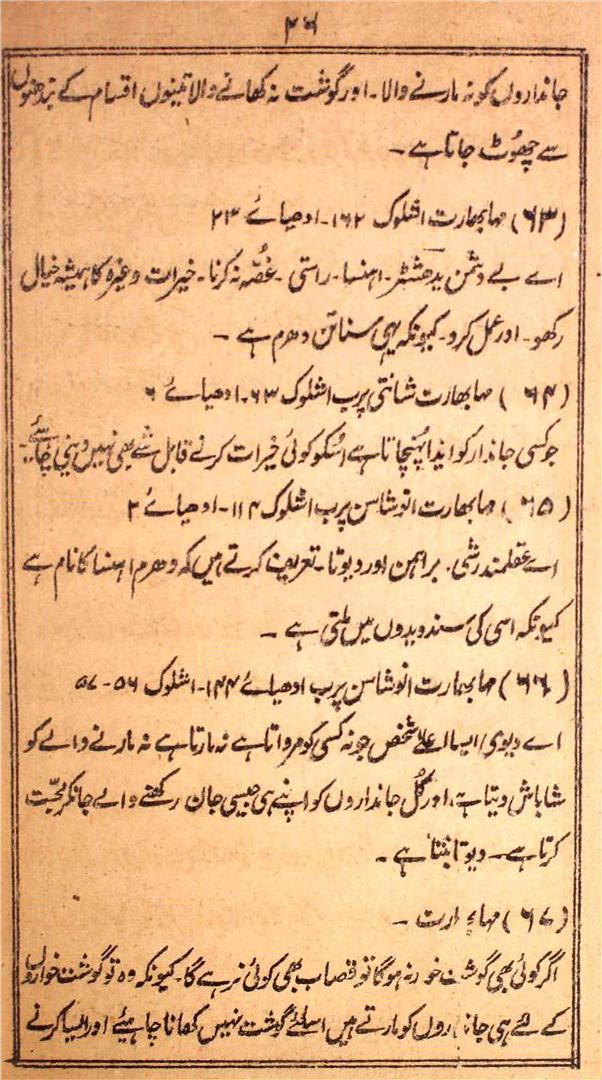 ۴۶
جانداروں کو نہ مارنے والا۔ اور گوشت نہ کھانے والا تینوں اقسام کے بندھنوں
سے چھُوٹ جاتا ہے ۔
(۶۳) مہابھارت اشلوک ۱۶۲۔ ادھیائے ۲۳
اے بے دشمن یدھشٹر۔ اہنسا۔ راستی ۔ غصّہ نہ کرنا ۔ خیرات وغیرہ کا ہمیشہ خیال
رکھو۔ اور عمل کرو۔ کیونکہ یہی سناتن دھرم ہے ۔
(۶۴) مہابھارت شانتی پرب اشلوک ۶۳۔ ادھیائے ۶
جو کسی جاندار کو ایذا پہُنچاتا ہے اُسکو کوئی خیرات کرنے قابل شے بھی نہیں دینی چاہئے۔
(۶۵) مہابھارت انوشاسن پرب اشلوک ۱۱۴۔ ادھیائے ۲
اے عقلمند رشی۔ براہمن اور دیوتا۔ تعریف کرتے ہیں کہ دھرم اہنسا کا نام ہے
کیونکہ اسی کی سند ویدوں میں ملتی ہے ۔
(۶۶) مہابھارت انوشاسن پرب ادھیائے ۱۴۴۔ اشلوک ۵۶۔ ۵۷
اے دیوی! ایسا اعلےٰ شخص جو نہ کسی کو مرواتا ہے نہ مارتا ہے نہ مارنے والے کو
شاباش دیتا ہے، اور کُل جانداروں کو اپنے ہی جیسی جان رکھنے والے جانکر محبّت
کرتا ہے۔ دیوتا بنتا ہے ۔
(۶۷) مہا ارت ۔
اگر کوئی بھی گوشت خور نہ ہوگا تو قصاب بھی کوئی نہ رہے گا۔ کیونکہ وہ تو گوشت خواروں
کے لئے ہی جانداروں کو مارتے ہیں اسلئے گوشت نہیں کھانا چاہیئے اور ایسا کرنے